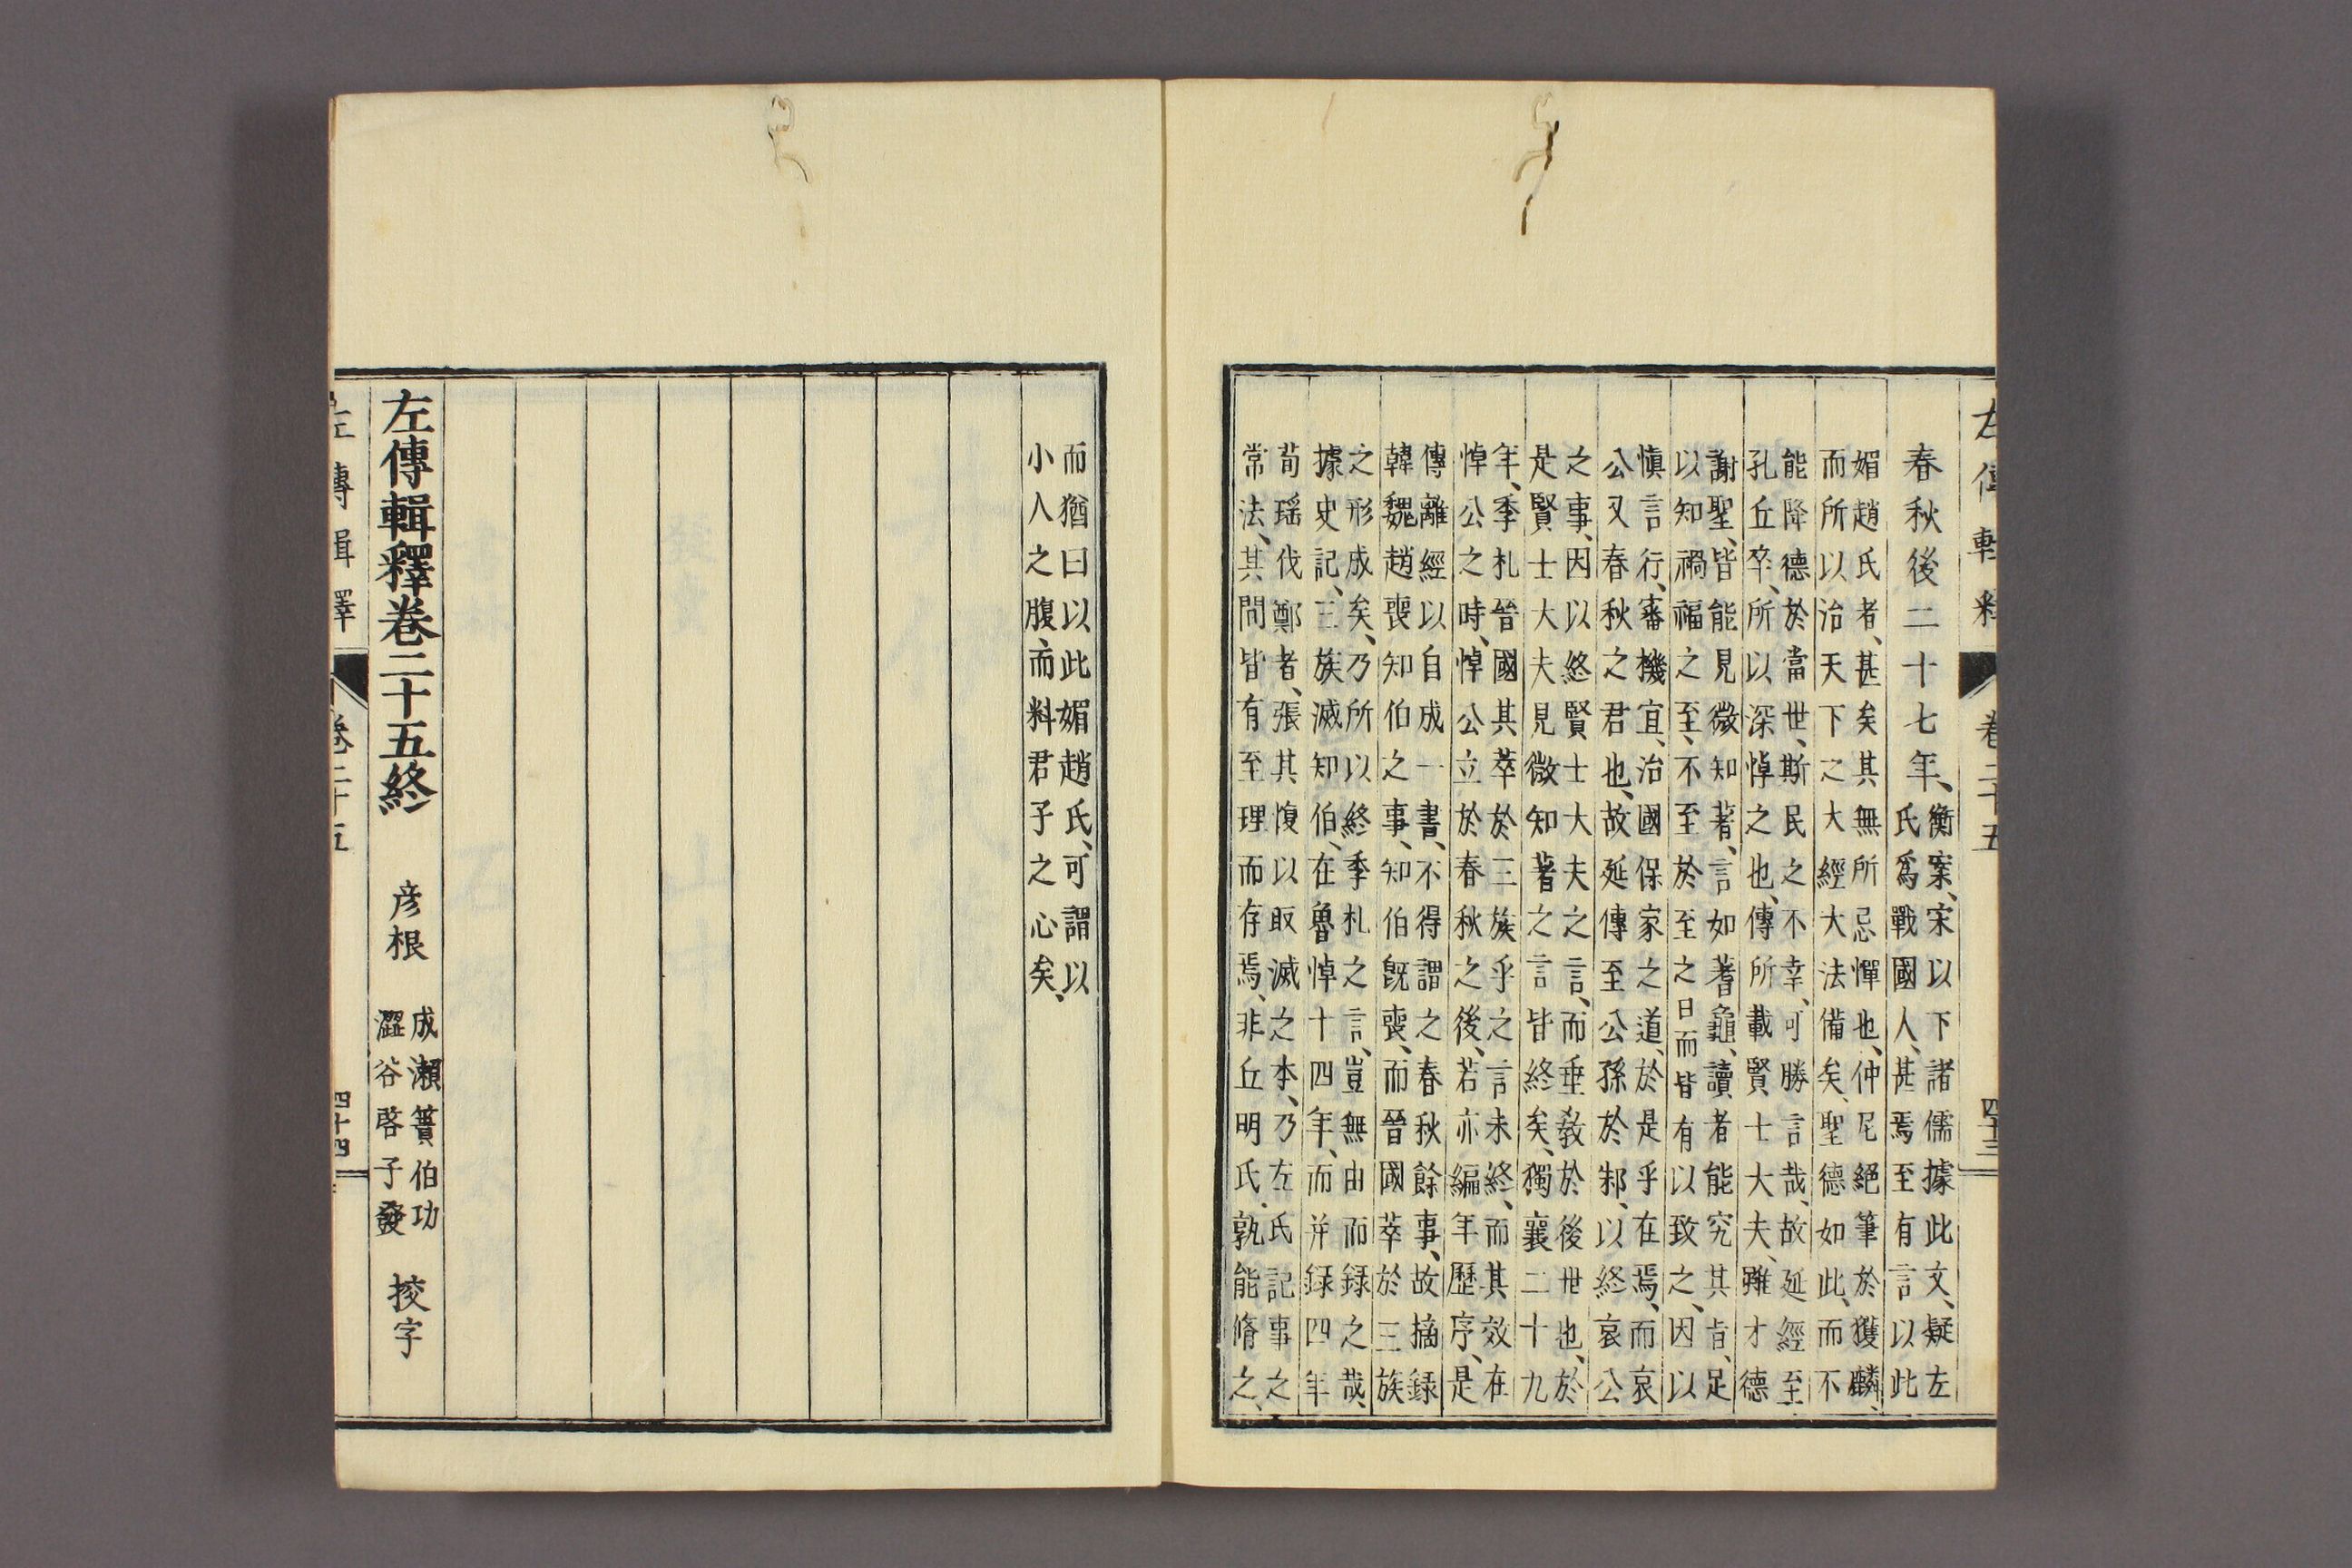 左傳輯釋 卷二十五 四十三
春秋後二十七年、衡案、宋以下諸儒據此文、疑左
氏爲戰國人、甚焉至有言以此
媚趙氏者、甚矣其無所忌憚也、仲尼絕筆於獲麟、
而所以治天下之大經大法備矣、聖德如此、而不
能降德於當世、斯民之不幸、可勝言哉、故延經至
孔丘卒、所以深悼之也、傳所載賢士大夫、雖才德
謝聖、皆能見微知著、言如蓍龜、讀者能究其旨、足
以知禍福之至、不至於至之日而皆有以致之、因以
愼言行、審機宜、治國保家之道、於是乎在焉、而哀
公又春秋之君也、故延傳至公孫於邾、以終哀公
之事、因以終賢士大夫之言、而垂教於後世也、於
是賢士大夫見微知著之言皆終矣、獨襄二十九
年、季札晉國其萃於三族乎之言未終、而其效在
悼公之時、悼公立於春秋之後、若亦編年歷序、是
傳離經以自成一書、不得謂之春秋餘事、故摘録
韓魏趙喪知伯之事、知伯旣喪、而晉國萃於三族
之形成矣、乃所以終季札之言、豈無由而録之哉、
據史記、三族滅知伯、在魯悼十四年、而并録四年
荀瑶伐鄭者、張其愎以取滅之本、乃左氏記事之
常法、其間皆有至理而存焉、非丘明氏、孰能脩之、
而猶曰以此媚趙氏、可謂以
小人之腹、而料君子之心矣、
左傳輯釋卷二十五終 彦根 成瀬簣伯功
澀谷啓子發 挍字
左傳輯釋 卷二十五 四十四